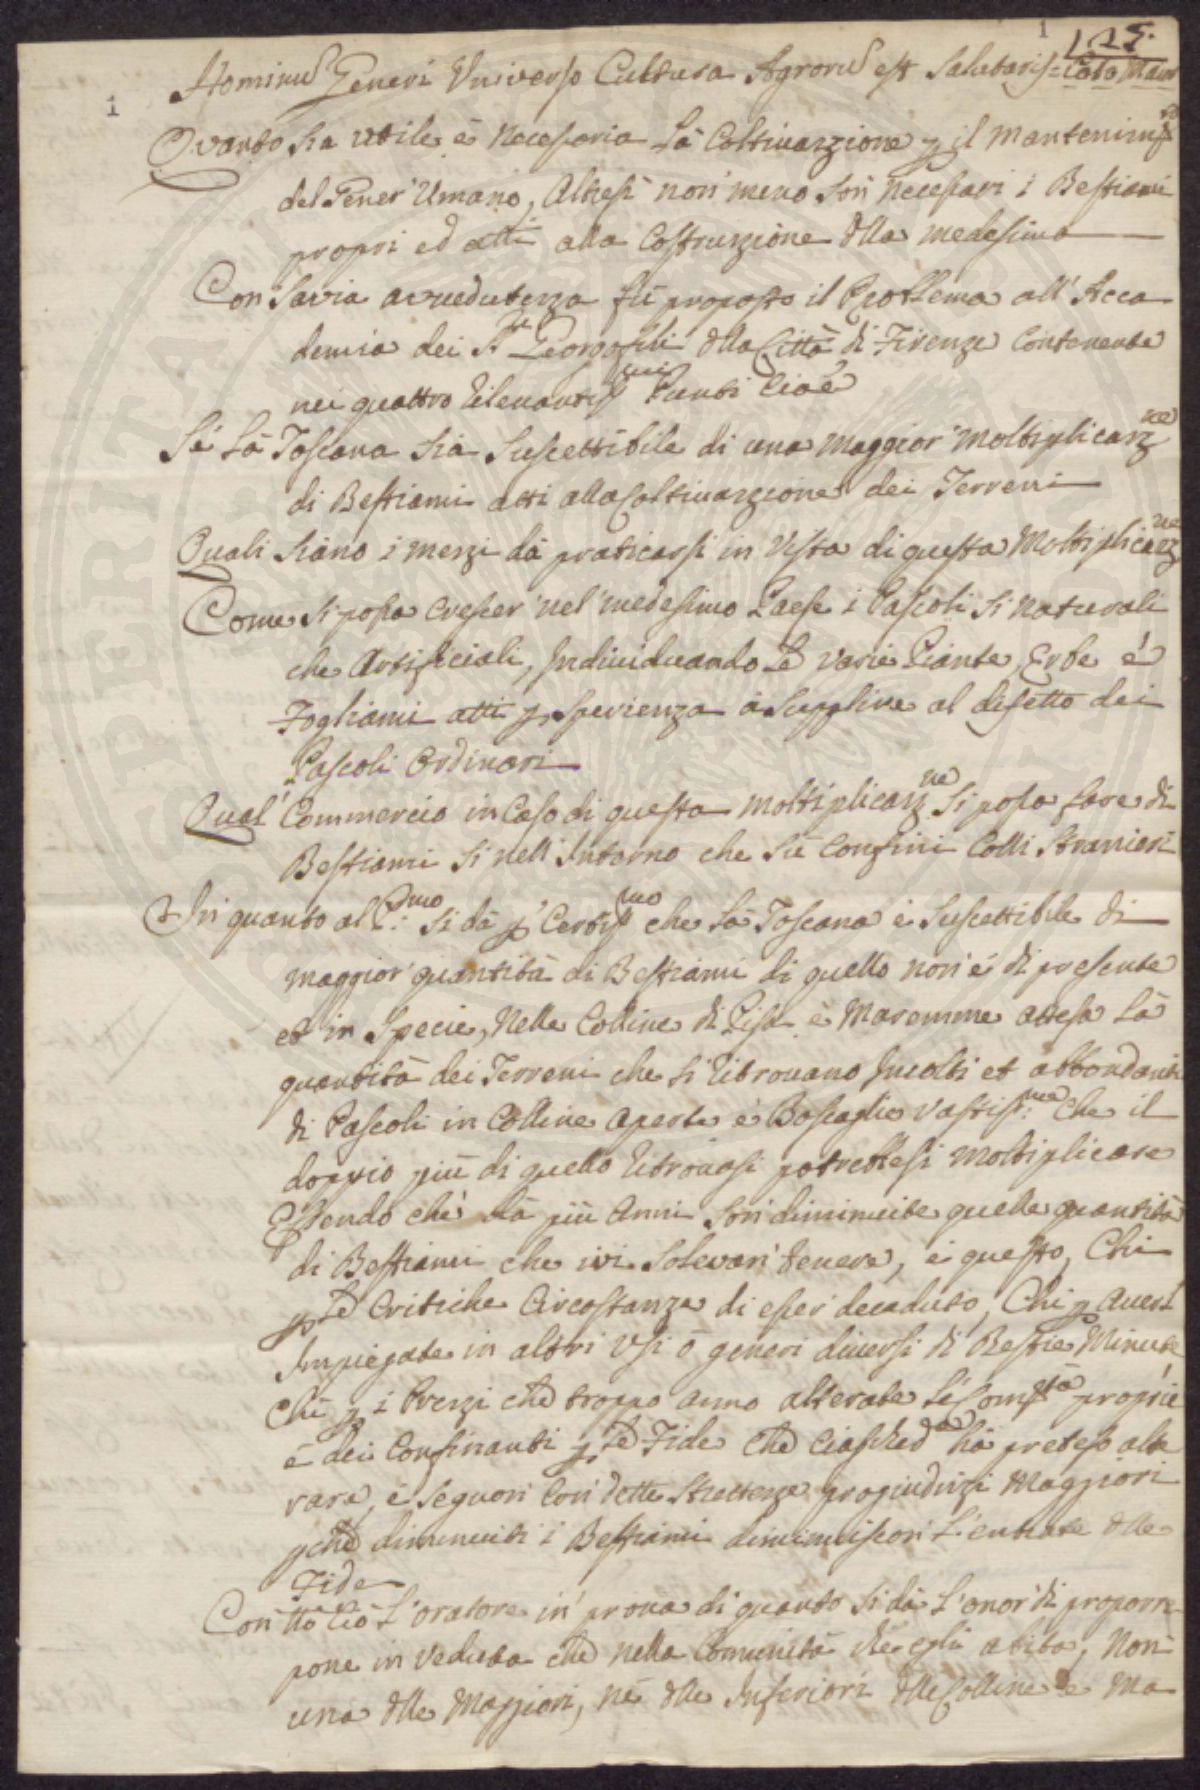 1
125.
1
Hominu Generi Universo Cultura Agroru est Salutaris = Cato Maior
Quanto sia utile è necessaria la Coltivazzione p il Mantenimto
del Gener Umano, Altresì non meno son necessari i Bestiami
propri ed atti alla Costruzzione dlla medesima
Con savia avvedutezza fù proposto il Problema all' Acca
demia dei Sri Georgofili dlla Città di Firenze Contenente
nei quattro rilevantissmi Punti Cioè
Se la Toscana sia suscettibile di una maggior Moltiplicazne
di Bestiami atti alla Coltivazzione dei Terreni
Quali siano i mezzi dà praticarsi in Vista di questa Moltiplicazne
Come si possa crescer nel medesimo Paese i Pascoli si naturali
che Artificiali, Individuando le varie Piante, Erbe é
Fogliami atti p sperienza à supplire al difetto dei
Pascoli Ordinari
Qual' Commercio in Caso di questa moltiplicazne si possa fare di
Bestiami si nell' Interno che sù Confini Colli Stranieri
In quanto al Pmo: si dà p Certissmo che la Toscana è suscettibile di
maggior quantità di Bestiami di quello non é di presente
et in Specie, nelle Colline di Pisa è Maremme attesa la
quantità dei Terreni che si ritrovano Incolti et abbondanti
di Pascoli in Colline aperte è Boscaglie vastissme: che il
doppio più di quello ritrovasi potrebbesi moltiplicare
Essendo chè dà più Anni son diminuite quelle quantità
di Bestiami che ivi solevan tenere, è questo, Chi
p le Critiche Circostanze di esser decaduto, Chi p averl
Impiegate in altri Usi ò generi diversi di Bestie Minute
Chi p i Prezzi che troppo anno alterate le Comtà proprie
è dei Confinanti p le Fide che ciasched.a hà preteso alte
rare, è seguon con dette strettezze pregiudizi Maggiori
pche diminuiti i Bestiami diminuiscon l'entrate dlle
Fide
Con tto Ciò l'oratore in prova di quanto si dà l'onor di proporre
pone in veduta che nella Comunità che egli abita, non
una dlle Maggiori, né dlle Inferiori dlle Colline e Ma